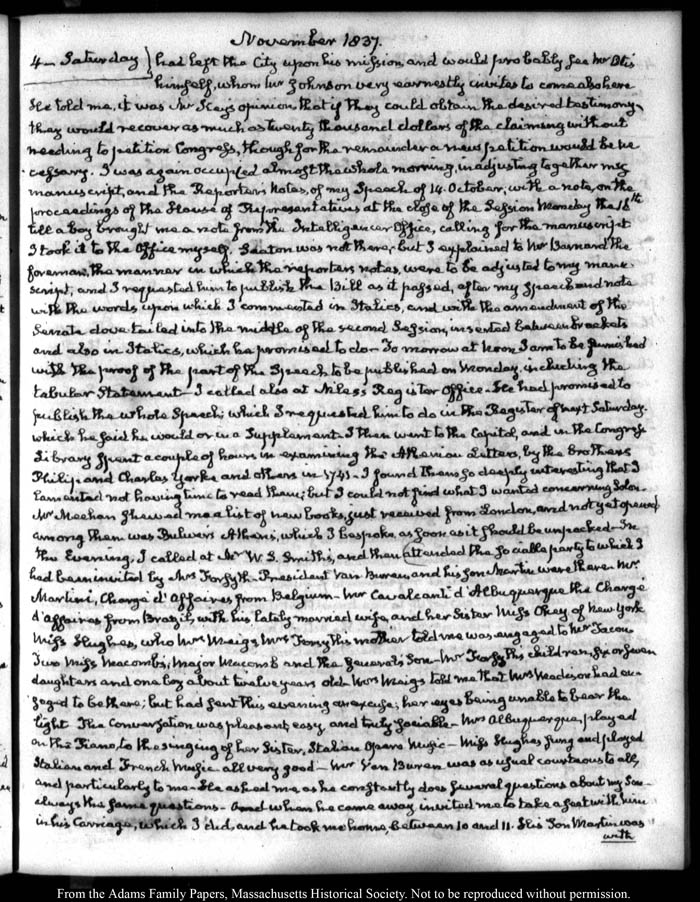 November 1837.
4. Saturday } had left the City upon his mission, and would probably see Mr Otis
himself, whom Mr Johnson very earnestly invites to come also here
He told me, it was Mr Key's opinion that if they could obtain the desired testimony,
they would recover as much as twenty thousand dollars of the claiming without
needing to petition Congress, though for the remainder a new petition would be ne-
cessary. I was again occupied almost the whole morning, in adjusting together my
manuscript, and the Reporter's Notes, of my Speech of 14. October, with a note, on the
proceedings of the House of Representatives at the close of the Session Monday the 16th
till a boy brought me a note from the Intelligencer Office, calling for the manuscript
I took it to the Office myself. Seaton was not there, but I explained to Mr Barnard the
foreman, the manner in which the reporters notes, were to be adjusted to my manu-
script, and I requested him to publish the Bill as it passed, after my Speech and note
with the words upon which I commented in Italics, and with the amendment of the
Senate dove tailed into the middle of the second Session, inserted between brackets
and also in Italics, which he promised to do. To morrow at Noon I am to be furnished
with the proof of the part of the Speech to be published on Monday, including the
tabular Statement. I called also at Niles's Register Office. He had promised to
publish the whole Speech; which I requested him to do in the Register of next Saturday.
which he said he would or in a Supplement. I then went to the Capitol, and in the Congress
Library spent a couple of hours in examining the Athenian Letters, by the brothers
Philip and Charles Yorke and others in 1741. I found them so deeply interesting that I
lamented not having time to read them; but I could not find what I wanted concerning Solon.
Mr Meehan shewed me a list of new books, just received from London, and not yet opened
among them was Bulwer's Athens, which I bespoke as soon as it should be unpacked. In
the Evening, I called at Mr W. S. Smith's, and then attended the sociable party to which I
had been invited by Mrs Forsyth. President Van Buren, and his son Martin were there. Mr
Martini, Chargé d'Affaires from Belgium. Mr Cavalcanti d'Albuquerque the Chargé
d'Affaires from Brazil, with his lately married wife, and her Sister Miss Oakey of New York
Miss Hughes, who Mrs Meigs, Mrs Forsyth's mother told me was engaged to Mr
Two Miss Macombs, Major Macomb and the General's Son. Mr Forsyth's children, six or seven
daughters and one boy about twelve years old. Mrs Meigs told me that Mrs Madison had en-
gaged to be there; but had sent this evening an excuse; her eyes being unable to bear the
light. The Conversation was pleasant, easy and truly sociable. Mrs Albuquerque, played
on the Piano, to the singing of her Sister, Italian Opera Music. Miss Hughes sung and played
Italian and French Music. all very good. Mr Van Buren was as usual courteous to all,
and particularly to me. He asked me as he constantly does several questions about my Son
always the same questions. And when he came away, invited me to take a seat with him
in his Carriage, which I did, and he took me home, between 10 and 11. His Son Martin was
with
From the Adams Family Papers, Massachusetts Historical Society. Not to be reproduced without permission.